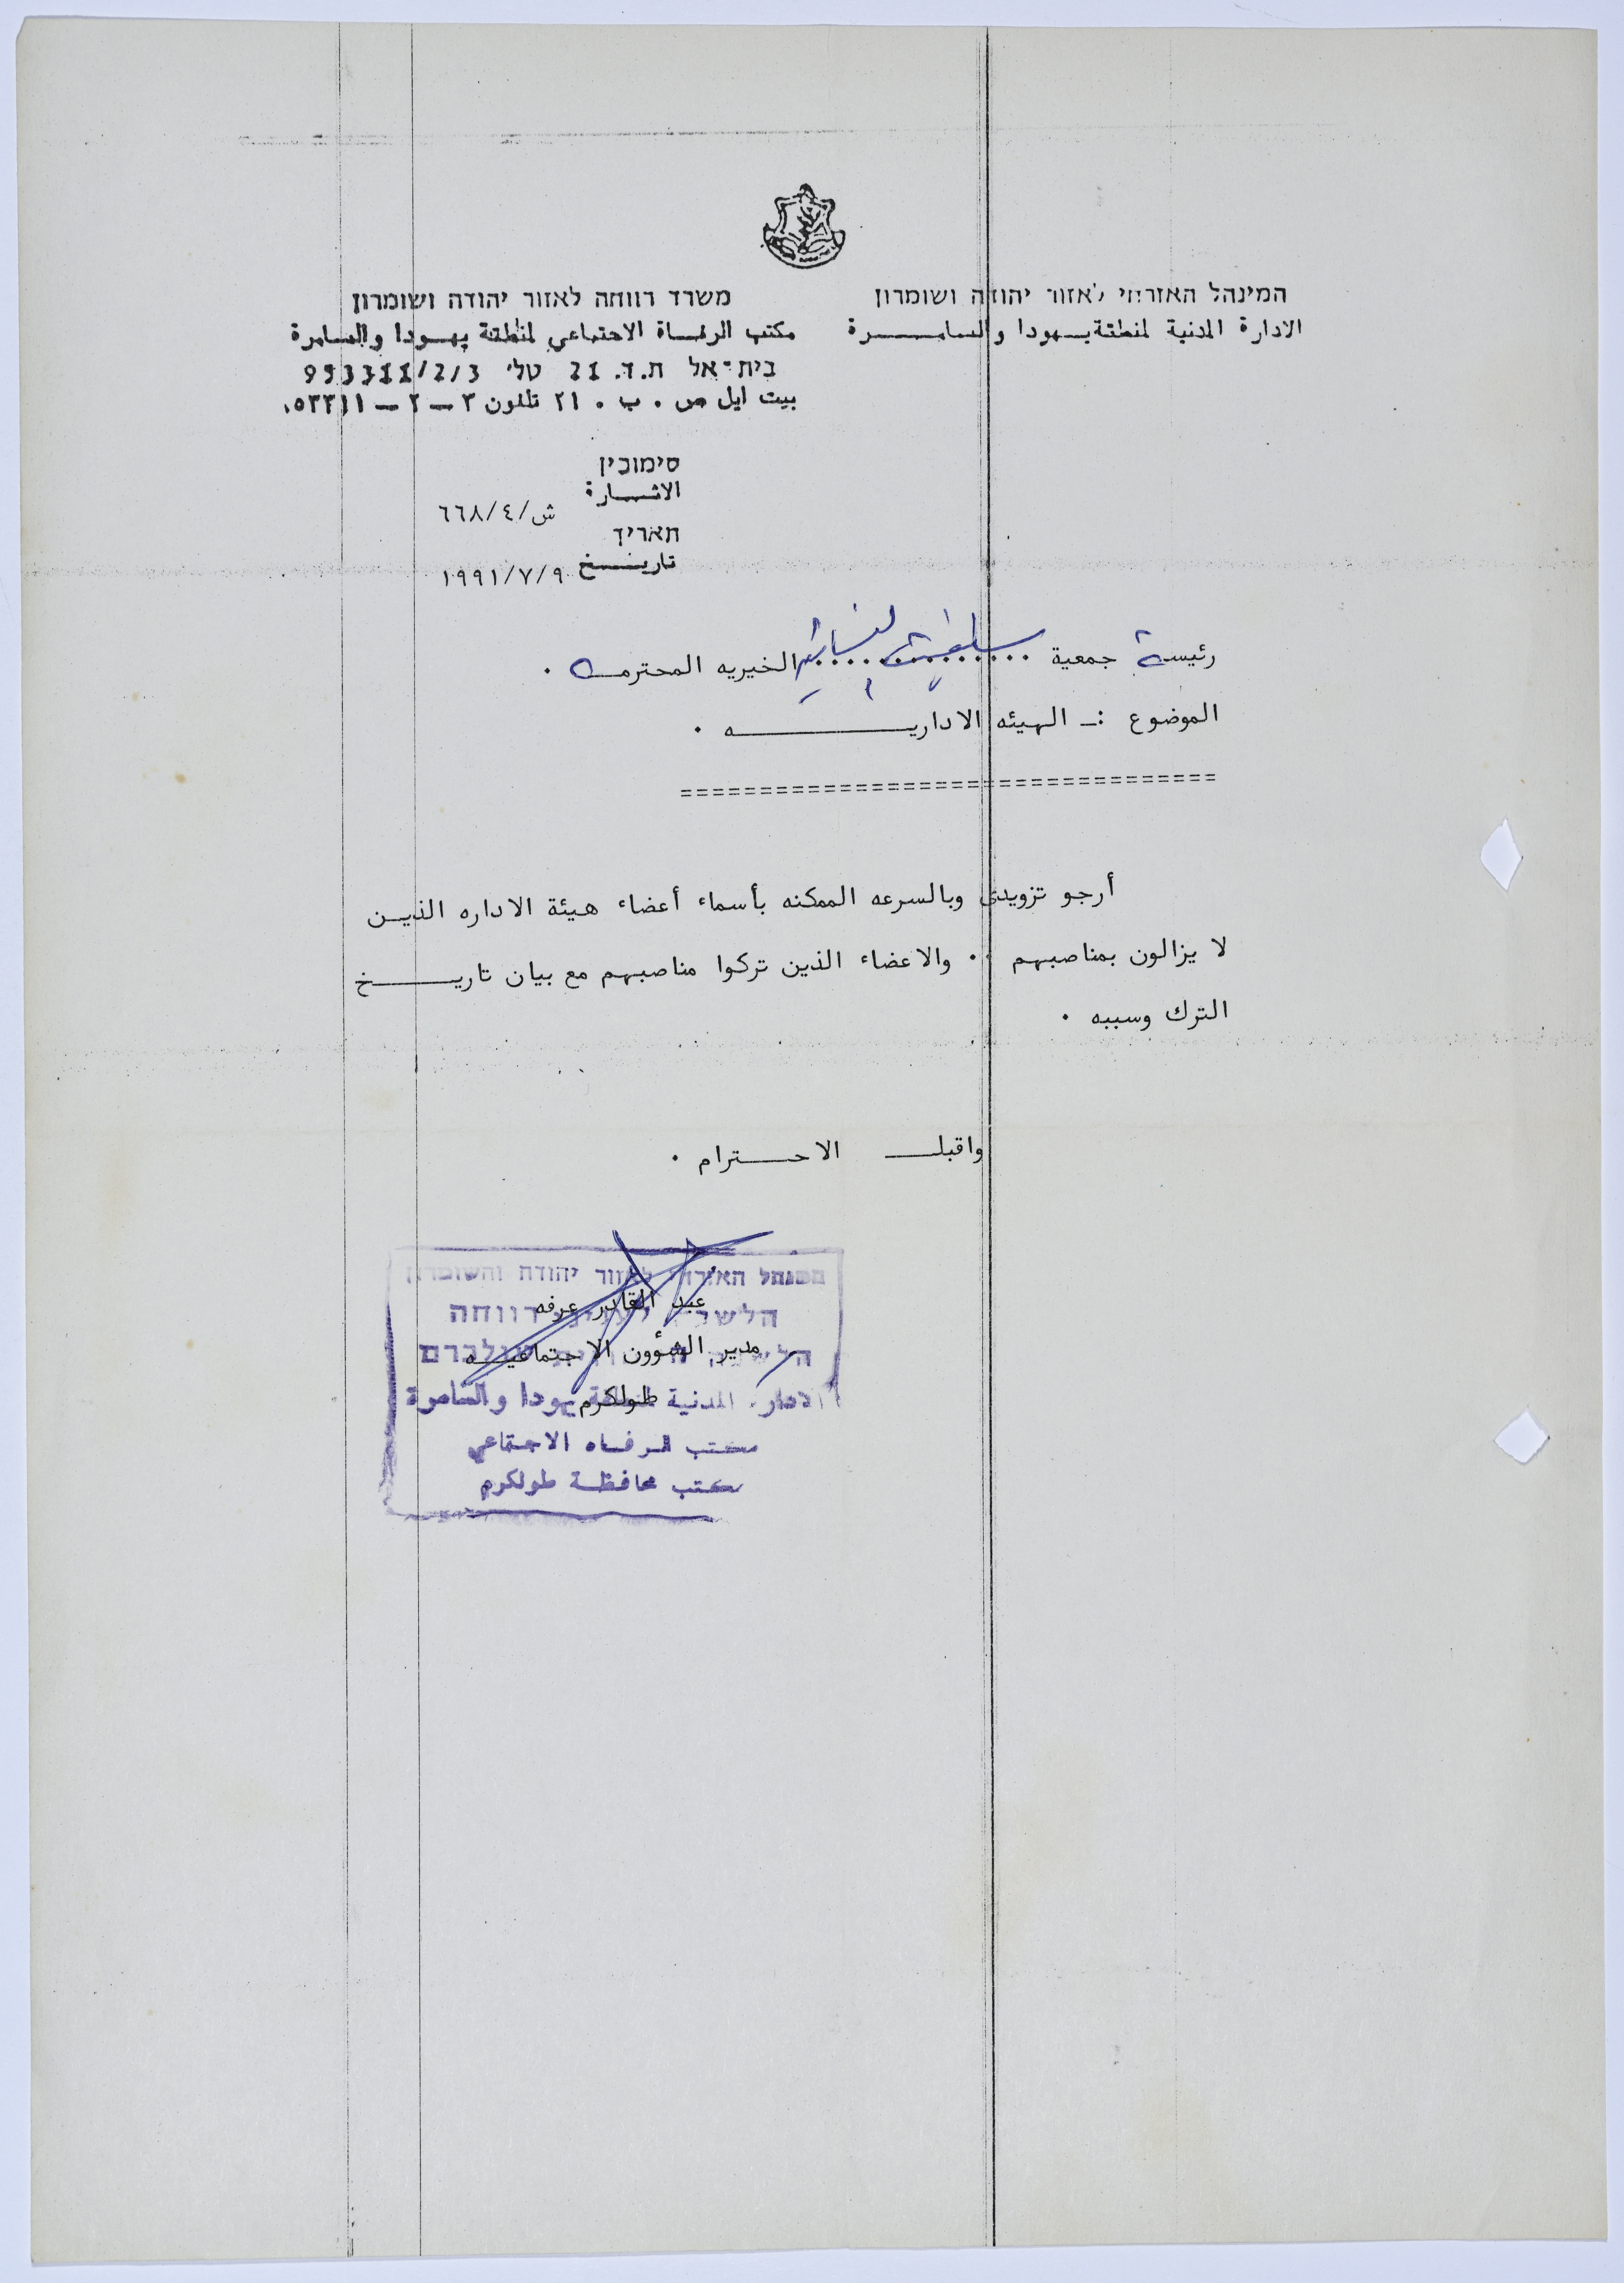 המינהל האזרחי לאזור יהודה ושומרון
الادارة المدنية لمنطقة يهودا والسامـــــرة
משרד רווחה לאזור יהודה ושומרון
مكتب الرفـاة الاجتماعي لمنطقة يهـودا والسـامرة
בית-אל ת.ד. 21 טל' 953311/2/3
بيت ايل ص . ب . ٢١ تلفون ٣ – ٢ – ٥٣٣١١
סימוכין
الاشـــارة
ش/٤/٦٦٨
תאריך
تاريـــخ
١٩٩١/٧/٩
رئيسة جمعية سلفيت النسائية الخيريه المحترمــه .
الموضوع :ـ الهيئه الاداريــــــــــه .
==================================
أرجو تزويدي وبالسرعه الممكنه بأسماء أعضاء هيئة الاداره الذيـن
لا يزالون بمناصبهم .. والاعضاء الذين تركوا مناصبهم مع بيان تاريـــــخ
الترك وسببه .
واقبلــ الاحــترام .
عبد القادر عرفه
مدير الشؤون الاجتماعيــه
طولكرم
המנהל האזרחי לאזור יהודה והשומרון
הלשכה לעניני רווחה
טולכרם
الادارة المدنية لمنطقة يهودا والسامرة
مكتب الرفـاه الاجتماعي
مكتب محافظـة طولكرم